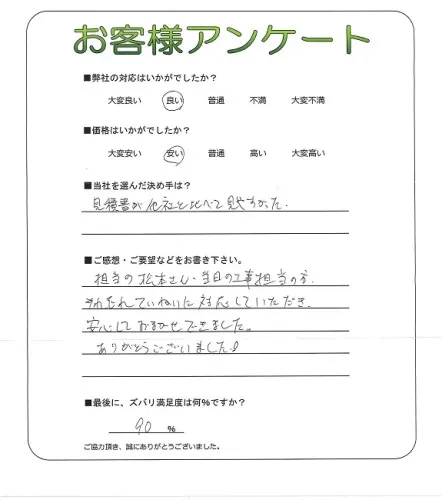 お客様アンケート
■弊社の対応はいかがでしたか？
大変良い 良い 普通 不満 大変不満
■価格はいかがでしたか？
大変安い 安い 普通 高い 大変高い
■当社を選んだ決め手は？
見積書が他社と比べて見やすかった.
■ご感想・ご要望などをお書き下さい。
担当の松本さん・当日の工事担当の方.
それぞれていねいに対応していただき.
安心しておまかせできました。
ありがとうございました♪
■最後に、ズバリ満足度は何%ですか？
90 %
ご協力頂き、誠にありがとうございました。